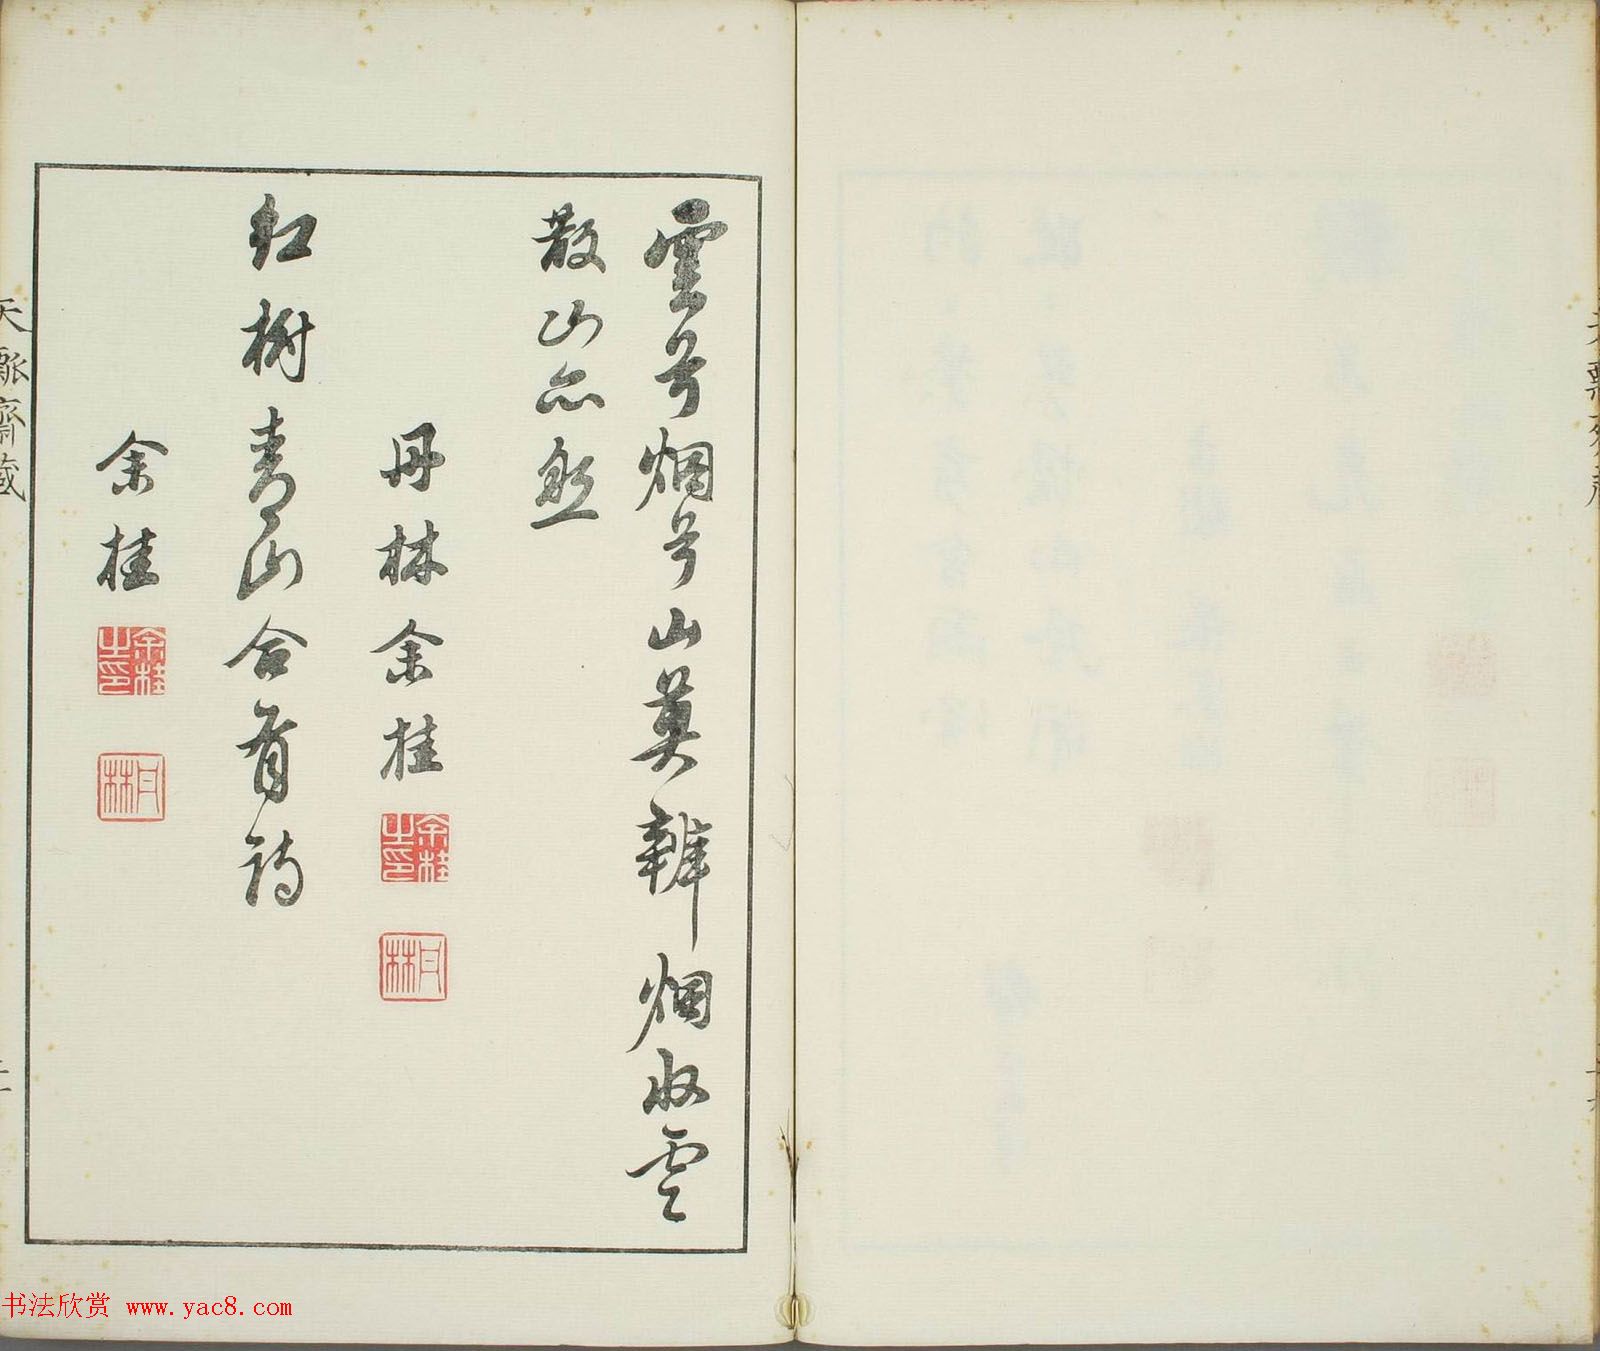 雲兮烟兮山莫辨烟收雲
散山亦然
丹林余桂
余桂之印
丹林
紅樹青山合有詩
余桂
余桂之印
丹林
天繇齋藏
书法欣赏 www.yac8.com